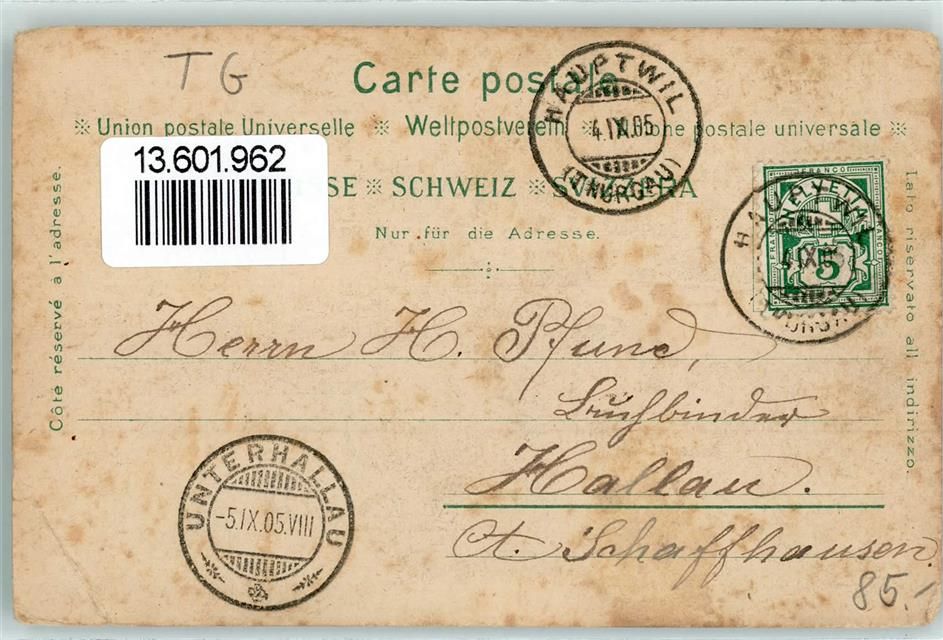 TG
Carte postale
※ Union postale Universelle ※ Weltpostverein ※ Unione postale universale ※
13.601.962
SSE ※ SCHWEIZ ※ SVIZZERA
Nur für die Adresse.
HAUPTWIL
4.IX.05
(THURGAU)
FRANCO HELVETIA
5
HAUPTWIL
4.IX.05
(THURGAU)
Côté réservé à l'adresse.
Lato riservato all indirizzo.
Herrn H.
Buchbinder
Hallau.
Ct. Schaffhausen
UNTERHALLAU
-5.IX.05.VIII
85.-